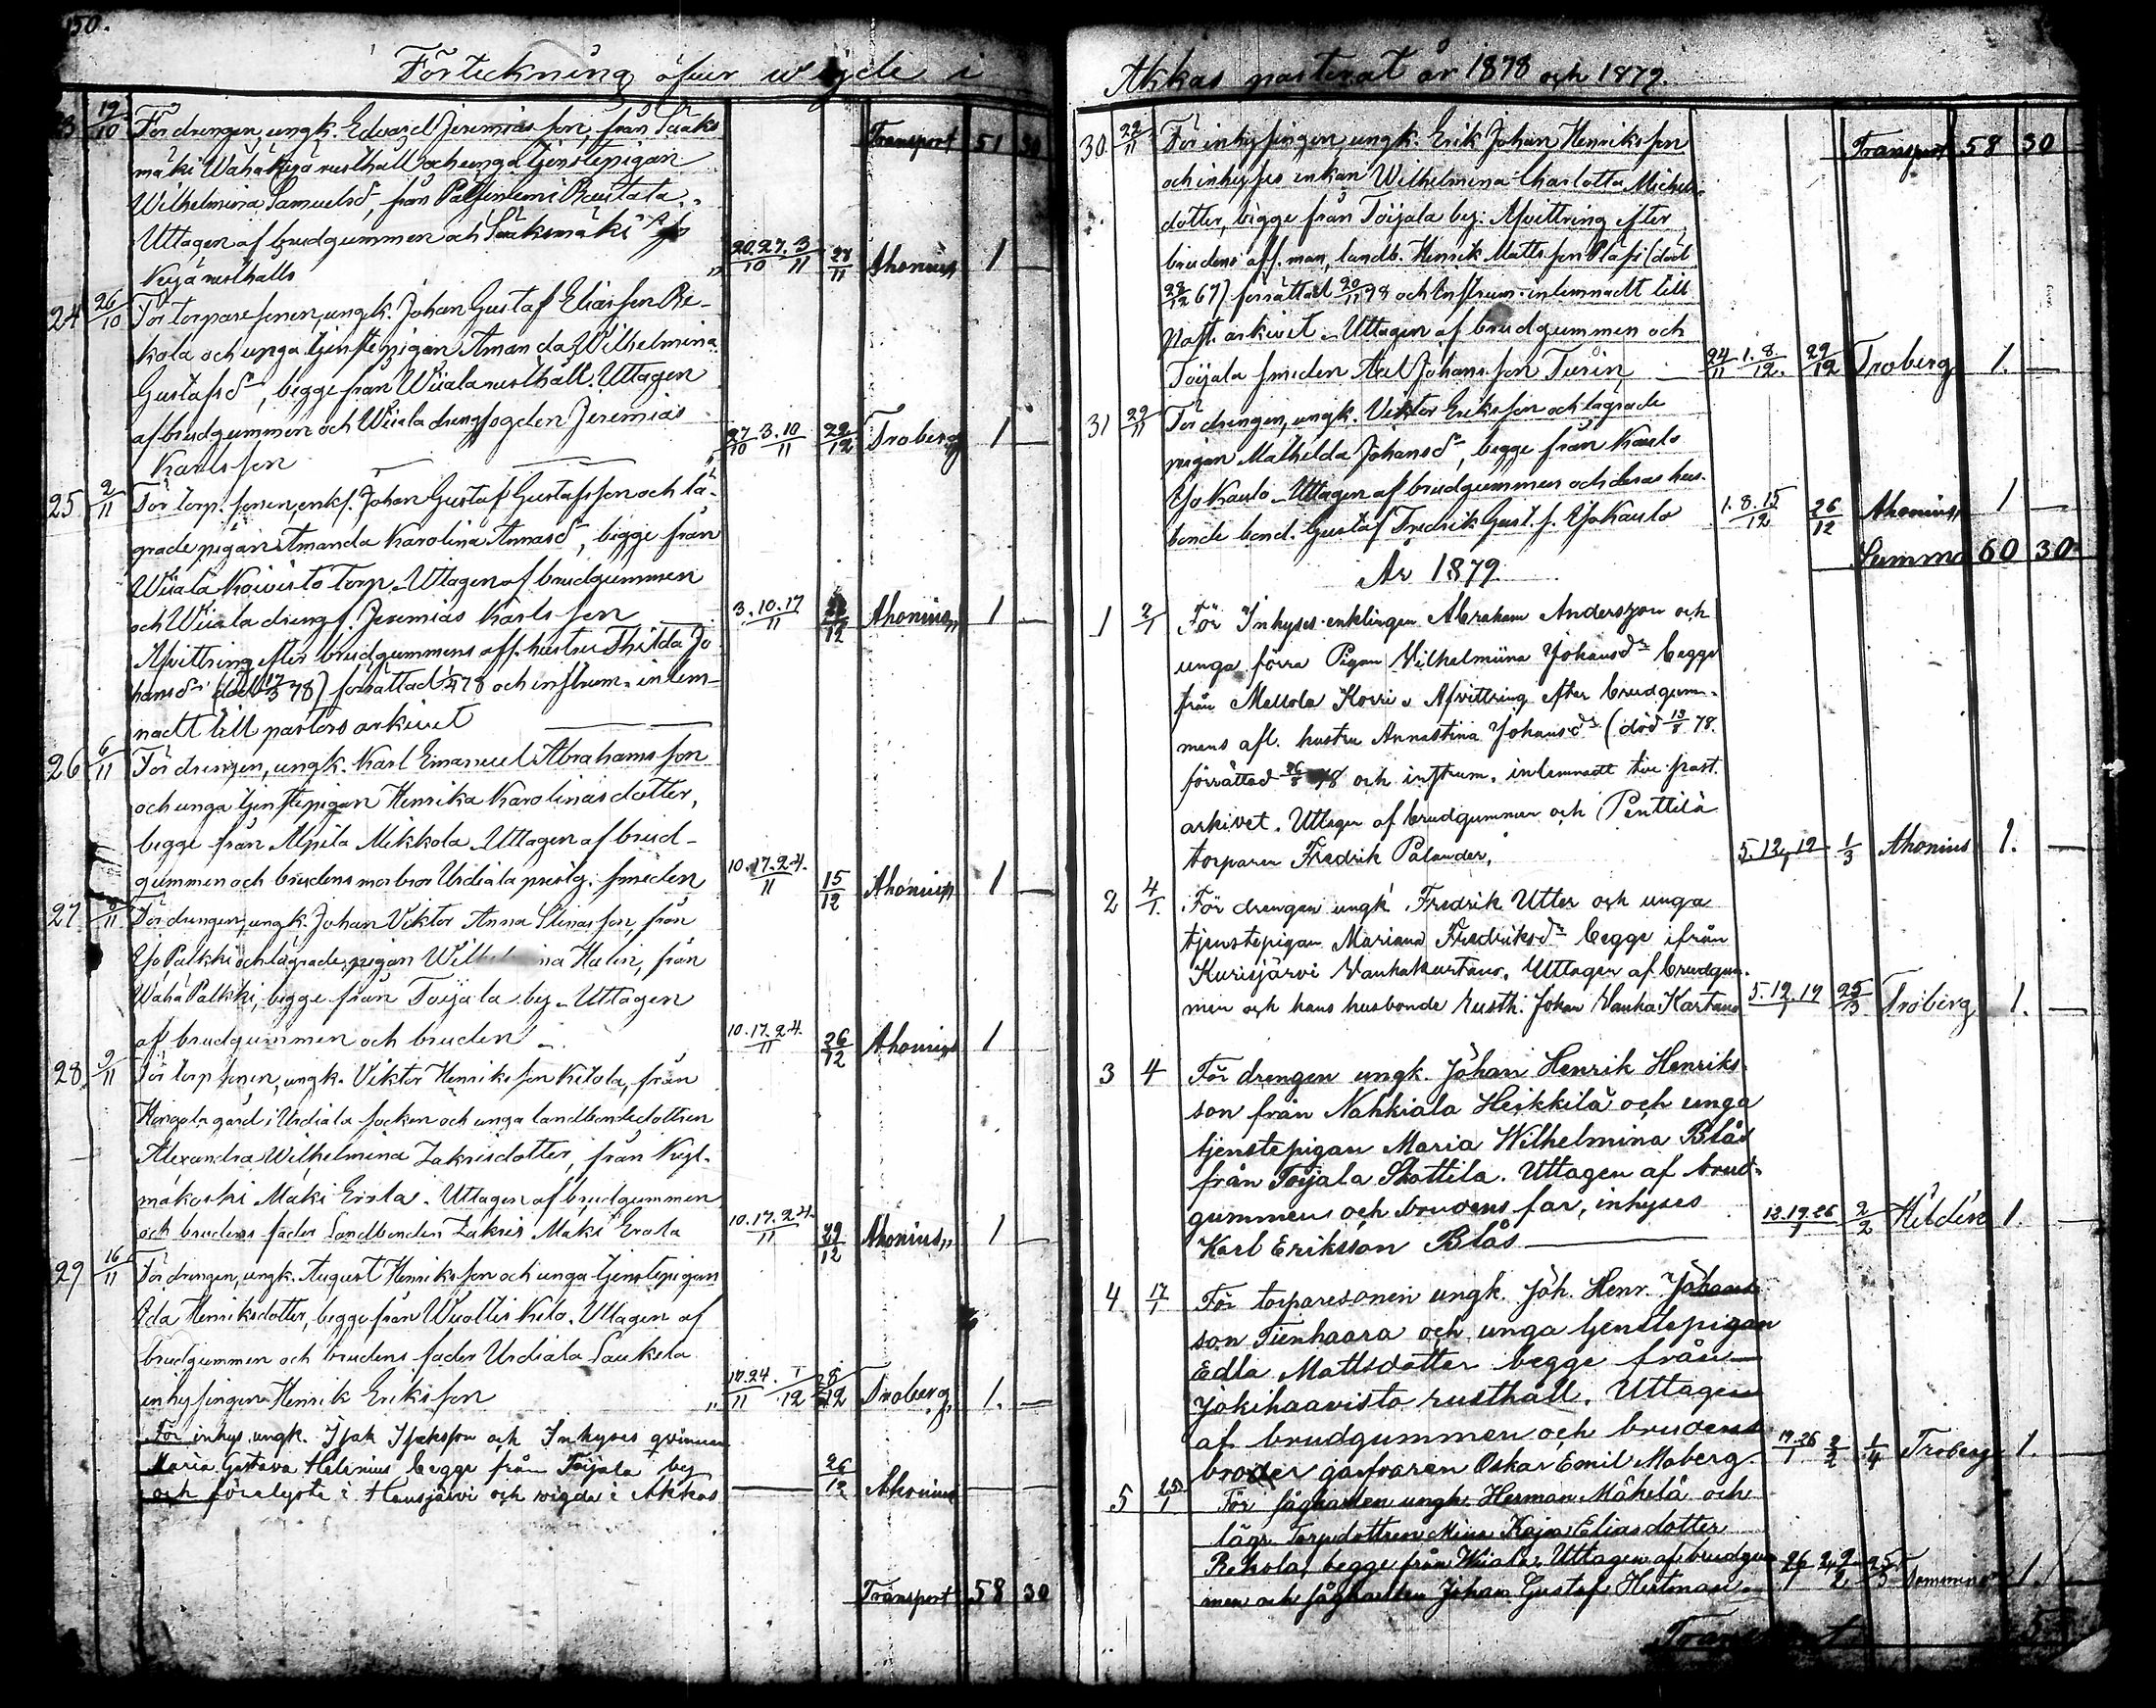 150.
Förteckning öfver wigde i
23 19/10 För drengen, ungk. Edvard Jeremias son, från Sääks
mäki Wähäkyjä rusthåll och unga tjenstepigan
Transport 51 30
Wilhelmina Samuelsd:r, från
Uttagen af brudgummen och Sääksmäki
Kyjä rusthålls
20.27/10 3/11 28/11 Ahonius 1 —
24 26/10 För torparesonen, ungk. Johan Gustaf Eliasson Re-
kola och unga tjenstepigan Amanda Wilhelmina
Gustafsd:r, begge från Wiiala rusthåll. Uttagen
af brudgummen och Wiiala drengfogden Jeremias
Karlsson
27/10 3.10/11 22/12 Troberg 1 —
25 2/11 För torp. sonen, enkl. Johan Gustaf Gustafsson och lä-
grade pigan Amanda Karolina Annasd:r, begge från
Wiiala Koivisto Torp. Uttagen af brudgummen
och Wiiala drengf. Jeremias Karlsson
3.10.17/11 /12 Ahonius 1 —
Afvittring efter brudgummens afl. hustru Thilda Jo
hansd:r (död 17/3 78) förrättad 78 och instrum. inlem-
nadt till pastors arkivet
26 6/11 För drengen, ungk. Karl Emanuel Abrahamsson
och unga tjenstepigan Henrika Karolinasdotter,
begge från Alpila Mikkola. Uttagen af brud-
gummen och brudens morbror Urdiala prestg. smeden
10.17.24./11 15/12 Ahonius 1 —
27 8/11 För drengen, ungk. Johan Viktor Anna Stinasson, från
Yo Palkki och lägrade pigan na Halin, från
Wähä Palkki, begge från Toijala by. Uttagen
af brudgummen och bruden
10.17.24./11 26/12 Ahonius 1
28. 9/11 För torp sonen, ungk. Viktor Henriksson Ketola, från
Hongola gård i Urdiala socken och unga landbondedottren
Alexandra Wilhelmina Zakrisdotter, från Kyl-
mäkoski Mäki Erola. Uttagen af brudgummen
och brudens fader Landbonden Zakris Mäki Erola
10.17.24./11 29/12 Ahonius 1 —
29 16/11 För drengen, ungk. August Henriksson och unga tjenstepigan
Ida Henriksdotter, begge från Wiallis Kelo. Uttagen af
brudgummen och brudens fader Urdiala Laukela
inhysingen Henrik Eriksson
17.24./11 1/12 8/12 Troberg 1. —
För inhys. ungk. Isak Isaksson och Inhyses qvinnan
Maria Gustava Helenius begge från Toijala by
och förelyste i Hausjärvi och wigda i Akkas
26/12 Ahonius
Transport 58 30
Akkas pastorat år 1878 och 1879.
30. 22/11 För inhysingen, ungk. Erik Johan Henriksson
Transport 58 30
och inhyses enkan Wilhelmina Charlotta Michels-
dotter, begge från Toijala by. Afvittring efter
brudens afl. man, landb. Henrik Mattsson Pläsi (död
28/12 67) förrättad 20/11 78 och instrum. inlemnadt till
Past. arkivet. Uttagen af brudgummen och
Toijala smeden Axel Johansson Turin
24/11 1.8./12. 29/12 Troberg 1. —
31 29/11 För drengen, ungk. Viktor Eriksson och lägrade
pigan Mathilda Johansd:r, begge från Kaulo
Yo Kaulo. Uttagen af brudgummen och deras hus-
bonde bond. Gustaf Fredrik Gust. s. Yo Kaulo
1.8.15/12 26/12 Ahonius 1 —
Summa 60 30
År 1879
1 2/1 För Inhyses enklingen Abraham Andersson och
unga förra Pigan Vilhelmiina Johansd:r begge
från Mellola Korri. Afvittring efter brudgum-
mens afl. hustru Annastina Johansd:r (död 13/5 78.
förrättad 78 och instrum. inlemnadt till past.
arkivet. Uttagen af brudgummen och Penttilä
torparen Fredrik Palander.
5.12.19 1/3 Ahonius 1. —
2 4/1. För drengen ungk. Fredrik Utter och unga
tjenstepigan Mariana Fredriksd:r begge ifrån
Kurisjärvi Vanhakartano. Uttagen af brudgum-
men och hans husbonde Rusth. Johan Vanha Kartano
5.12.19/1 25/3 Troberg 1. —
3 4 För drengen ungk. Johan Henrik Henriks-
son från Nahkiala Heikkilä och unga
tjenstepigan Maria Wilhelmina Blås
från Toijala Skottila. Uttagen af brud-
gummen och brudens far, inhyses
Karl Eriksson Blås
12.19.26/1 2/2 Hildén 1. —
4 17/1 För torparesonen ungk. Joh. Henr. Johans-
son Tienhaara och unga tjenstepigan
Edla Mattsdotter begge från
Jokihaavisto rusthåll. Uttagen
af brudgummen och brudens
broder garfvaren Oskar Emil Moberg.
19.26/1 2/2 1/4 Troberg 1. —
5 25/1 För sågkarlen ungk. Herman Mäkelä och
lägr. Torpdottren Mina Kajsa Eliasdotter
Rekola, begge från Wiiala. Uttagen af brudgum-
men och sågkarlen Johan Gustaf Hertman
26/1 2.9/2 25/3 1. —
Transport 5